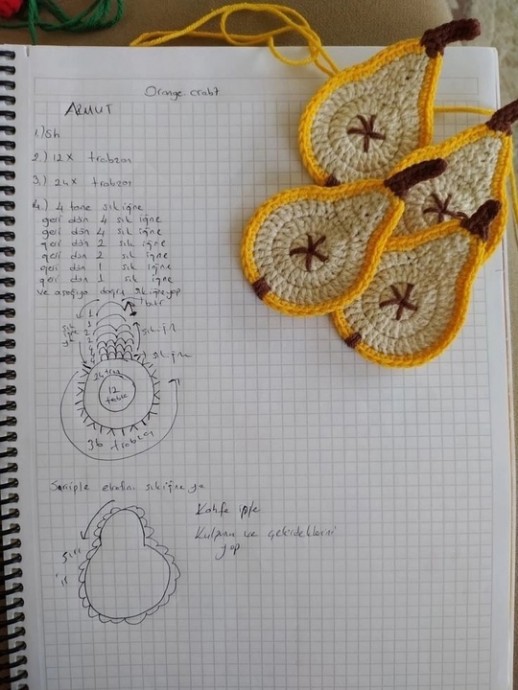 Orange.craft
ARMUT
1.) 5h
2.) 12x trabzan
3.) 24x trabzan
4.) 4 tane sık iğne
geri dön 4 sık iğne
geri dön 4 sık iğne
geri dön 2 sık iğne
geri dön 2 sık iğne
geri dön 1 sık iğne
geri dön 1 sık iğne
ve aşağıya doğru sık iğne yap
1
1
2
2
4
4
sık iğne
24 trab
12
trabz
36 trabzan
Sarı iple etrafını sık iğne ya
Kahfe iple
Kulpunu ve çekirdeklerini
yap